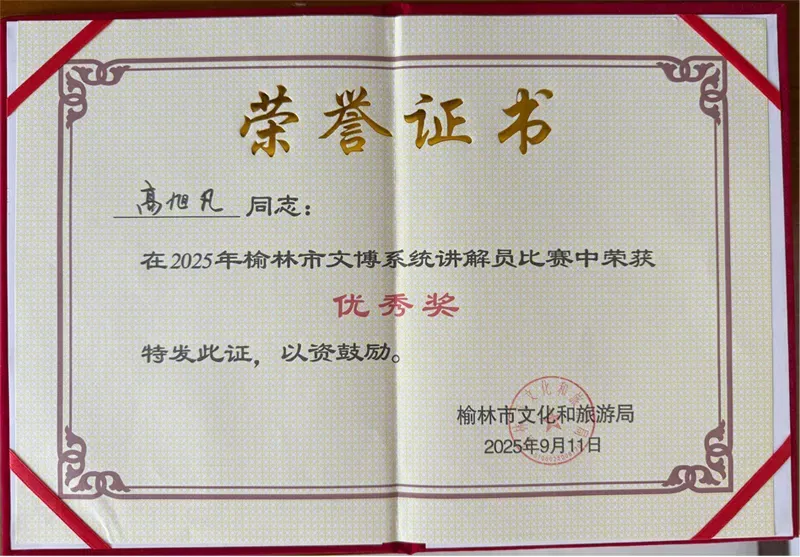 荣誉证书
高旭凡 同志：
在2025年榆林市文博系统讲解员比赛中荣获
优秀奖
特发此证，以资鼓励。
榆林市文化和旅游局
2025年9月11日